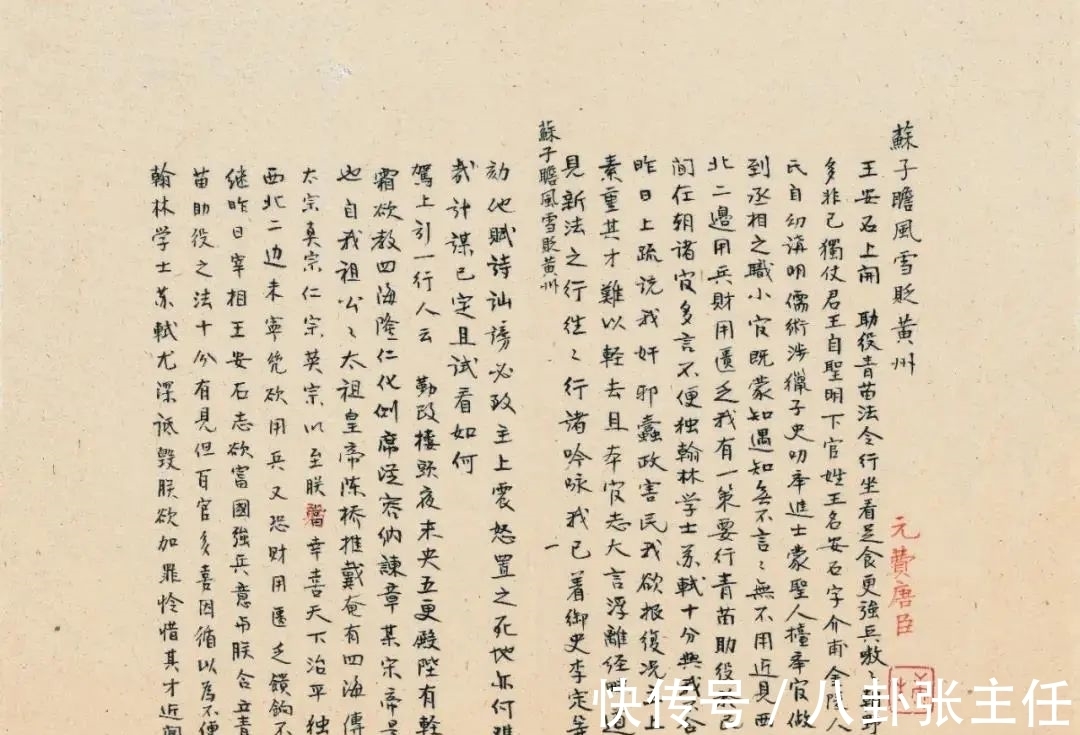 蘇子瞻風雪貶黃州
元費唐臣
王安石上開 助役青苗法令行坐看足食更強兵嗷
多非己獨仗君王自聖明下官姓王名安石字介甫金陵人
氏自幼講明儒術涉獵子史叨舉進士蒙聖人擡舉官做
到丞相之職小官既蒙知遇知無不言〻無不用近見西
北二邊用兵財用匱乏我有一策要行青苗助役
间在朝诸官多言不便独翰林学士苏轼十分與我
昨日上疏说我奸邪蠹政害民我欲报復况
素重其才難以輕去且本官志大言浮離经
見新法之行往〻行諸吟咏我已着御史李定等
蘇子瞻風雪貶黄州
一
劾他賦诗讪謗必致主上震怒置之死地亦何難
哉计謀已定且试看如何
駕上引一行人云 勤政樓頭夜未央五更殿陛有乾
霜欲教四海隆仁化側席従容纳諫章某宋帝是
也自我祖公〻太祖皇帝陈橋推戴奄有四海傳
太宗真宗仁宗英宗以至朕躬幸喜天下治平独
西北二边未寧凭欲用兵又恐财用匱乏鎮夠不
继昨日宰相王安石志欲富國強兵意与朕合立青
苗助役之法十分有見但百官多喜因循以為不便
翰林学士苏軾尤深诋毁朕欲加罪怜惜其才近聞
快传号 / 八卦张主任